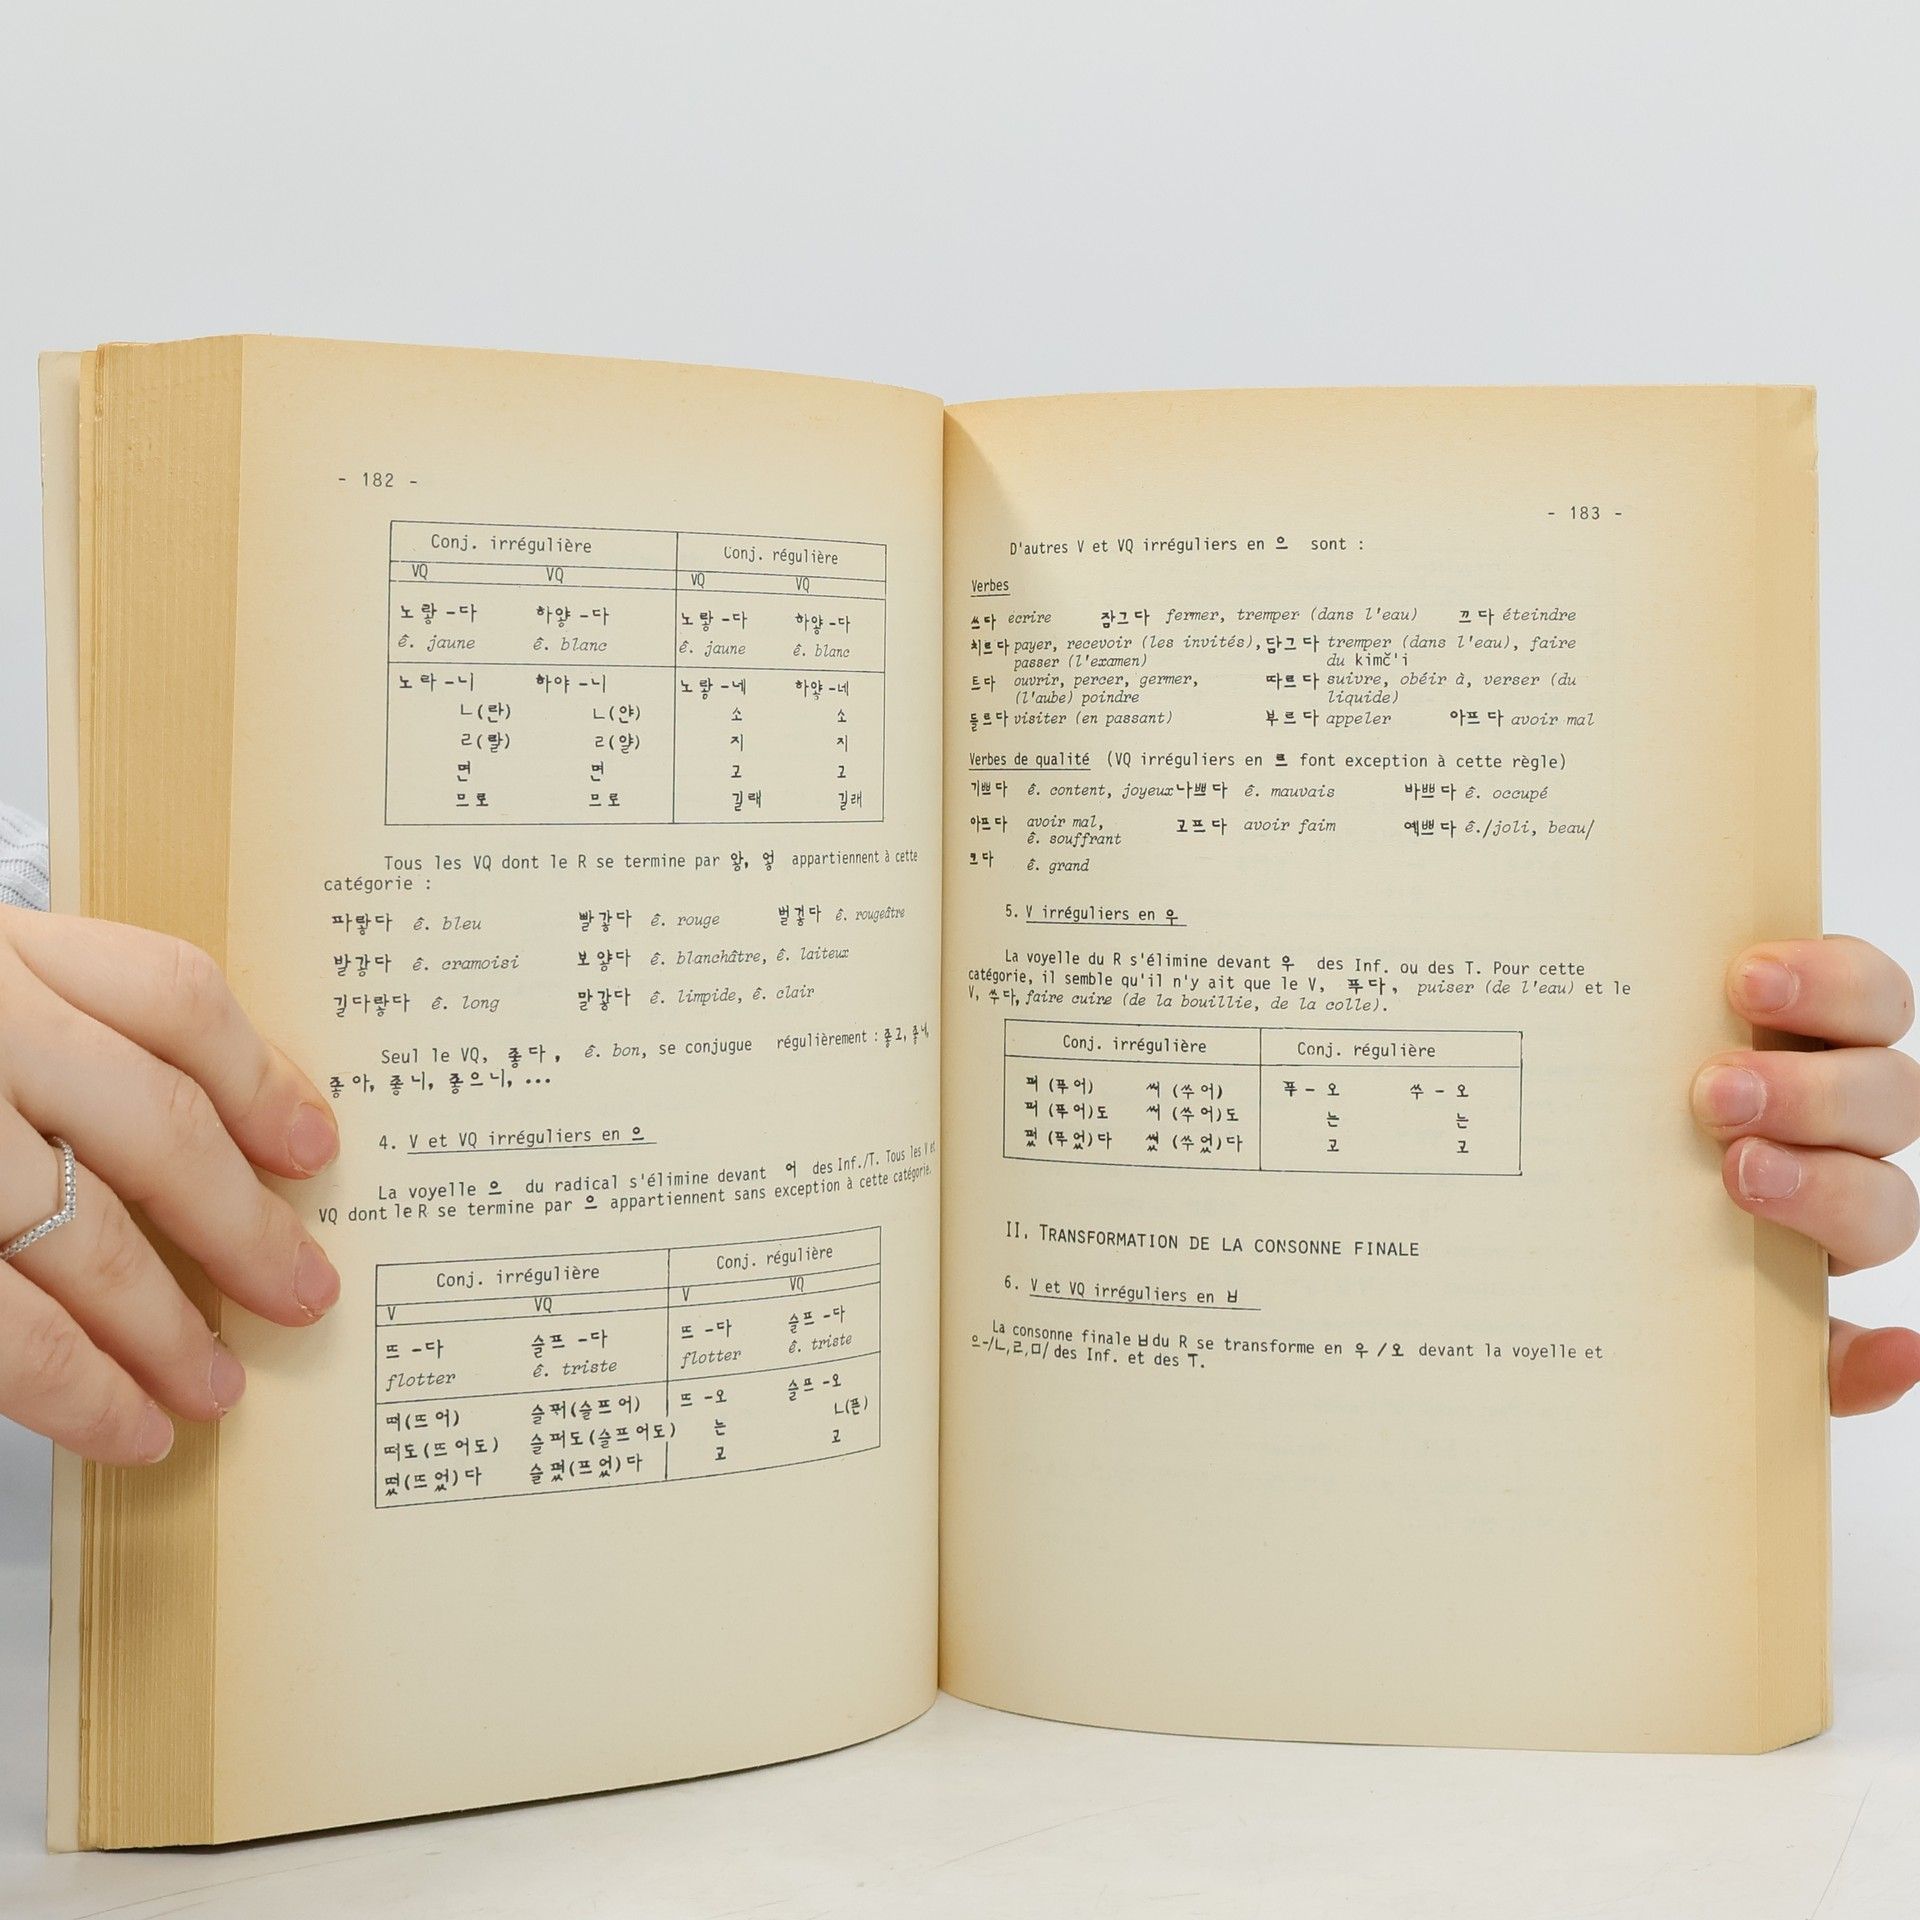 - 182 -
Conj. irrégulière Conj. régulière
VQ VQ VQ VQ
노랗 -다 하얗 -다 노랗 -다 하얗 -다
ê. jaune ê. blanc ê. jaune ê. blanc
노라 -니 하야 -니 노랗 -네 하얗 -네
ㄴ(란) ㄴ(얀) 소 소
ㄹ(랄) ㄹ(얄) 지 지
면 면 고 고
므로 므로 길래 길래
Tous les VQ dont le R se termine par 앟, 엏 appartiennent à cette
catégorie :
파랗다 ê. bleu 빨갛다 ê. rouge 벌겋다 ê. rougeâtre
발갛다 ê. cramoisi 보얗다 ê. blanchâtre, ê. laiteux
길다랗다 ê. long 말갛다 ê. limpide, ê. clair
Seul le VQ, 좋다, ê. bon, se conjugue régulièrement : 좋고, 좋네,
좋아, 좋니, 좋으니, ...
4. V et VQ irréguliers en 으
La voyelle 으 du radical s'élimine devant 어 des Inf./T. Tous les V et
VQ dont le R se termine par 으 appartiennent sans exception à cette catégorie.
Conj. irrégulière Conj. régulière
V VQ V VQ
뜨 -다 슬프 -다 뜨 -다 슬프 -다
flotter ê. triste flotter ê. triste
떠(뜨어) 슬퍼(슬프어) 뜨 -오 슬프 -오
떠도(뜨어도) 슬퍼도(슬프어도) 는 ㄴ(픈)
떴(뜨었)다 슬펐(프었)다 고 고
- 183 -
D'autres V et VQ irréguliers en 으 sont :
Verbes
쓰다 écrire 잠그다 fermer, tremper (dans l'eau) 끄다 éteindre
치르다 payer, recevoir (les invités), 담그다 tremper (dans l'eau), faire
passer (l'examen) du kimč'i
트다 ouvrir, percer, germer, 따르다 suivre, obéir à, verser (du
(l'aube) poindre liquide)
들르다 visiter (en passant) 부르다 appeler 아프다 avoir mal
Verbes de qualité (VQ irréguliers en 르 font exception à cette règle)
기쁘다 ê. content, joyeux 나쁘다 ê. mauvais 바쁘다 ê. occupé
아프다 avoir mal, 고프다 avoir faim 예쁘다 ê./joli, beau/
ê. souffrant
크다 ê. grand
5. V irréguliers en 우
La voyelle du R s'élimine devant 우 des Inf. ou des T. Pour cette
catégorie, il semble qu'il n'y ait que le V, 푸다, puiser (de l'eau) et le
V, 쑤다, faire cuire (de la bouillie, de la colle).
Conj. irrégulière Conj. régulière
퍼 (푸어) 써 (쑤어) 푸 - 오 쑤 - 오
퍼 (푸어)도 써 (쑤어)도 는 는
펐 (푸었)다 썼 (쑤었)다 고 고
II. TRANSFORMATION DE LA CONSONNE FINALE
6. V et VQ irréguliers en ㅂ
La consonne finale ㅂ du R se transforme en 우 /오 devant la voyelle et
으-/ㄴ,ㄹ,ㅁ/ des Inf. et des T.